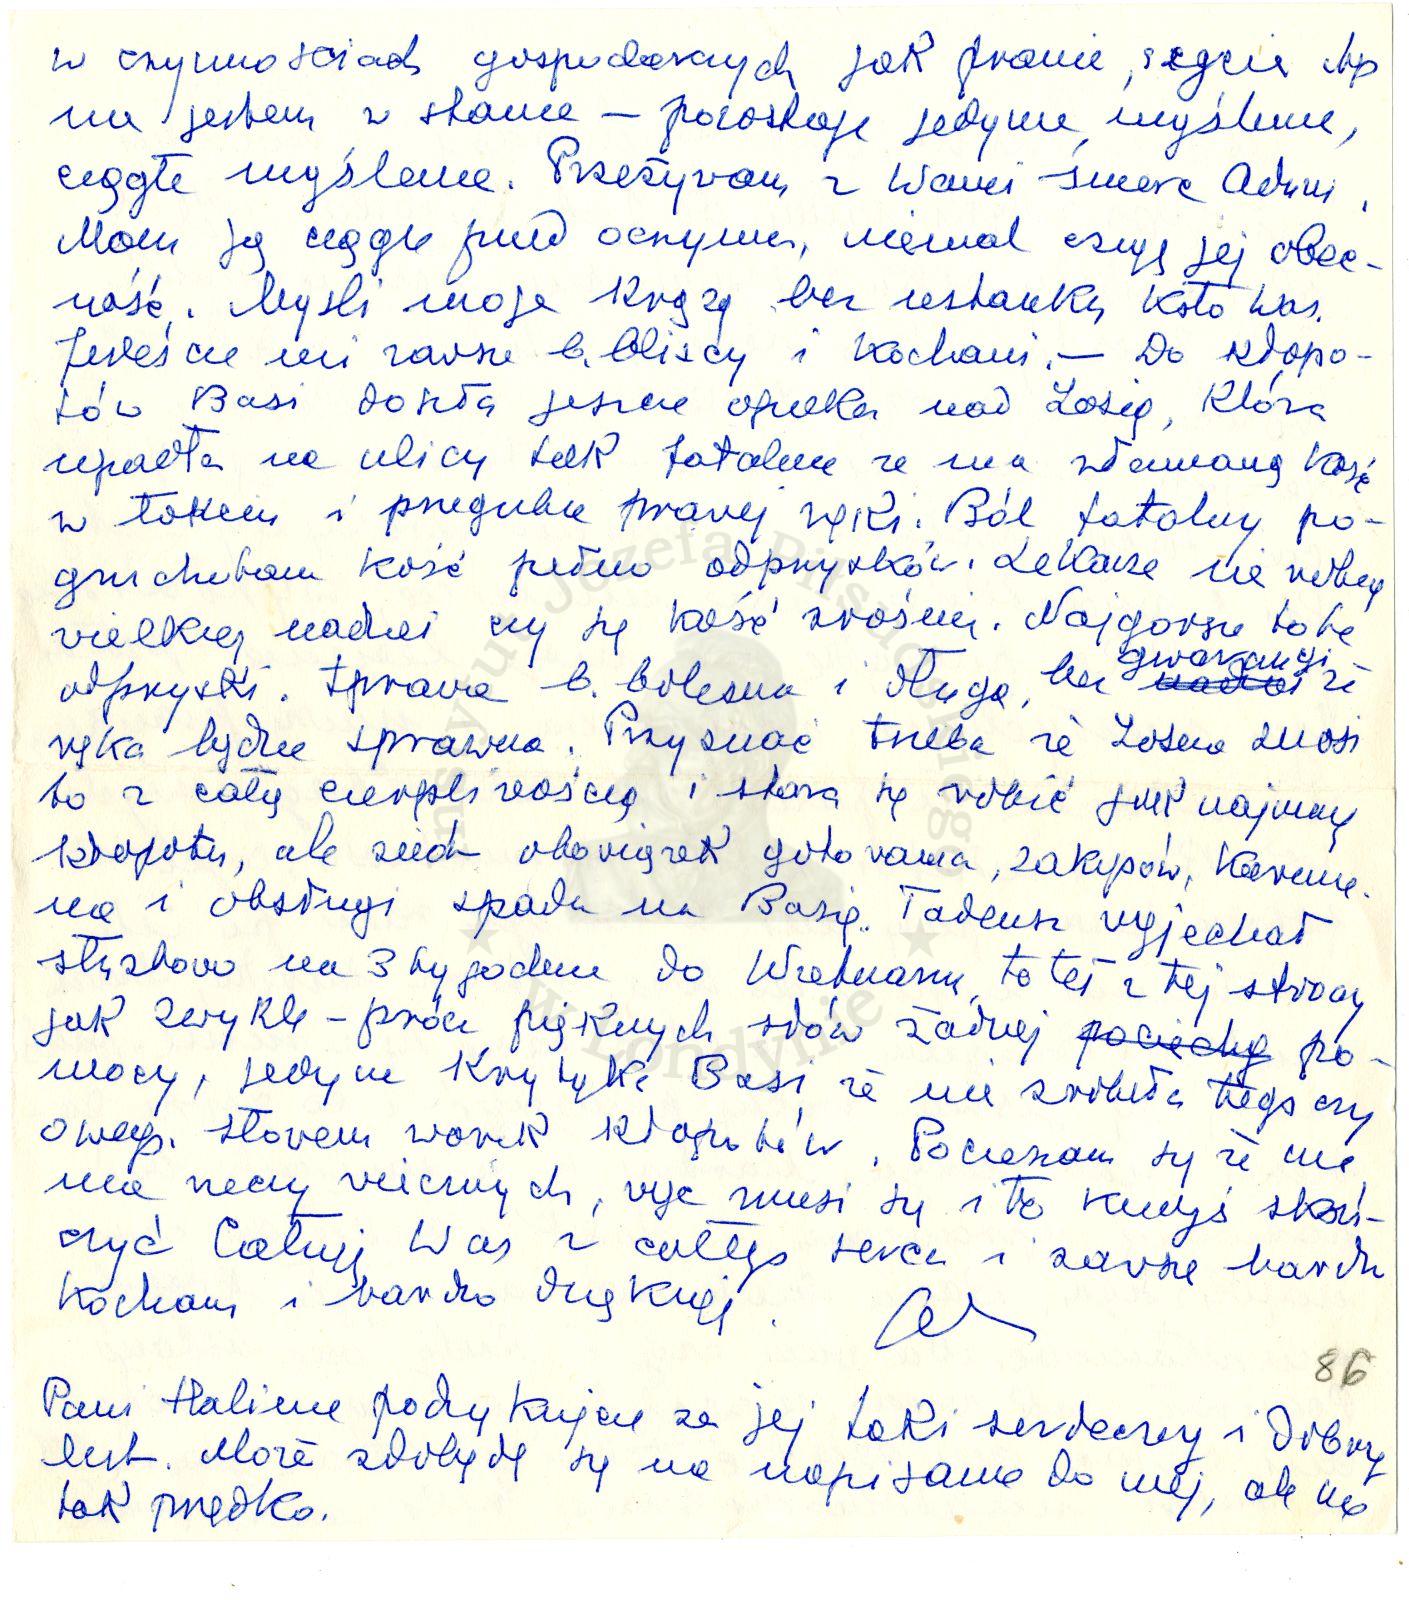 w czynnościach gospodarczych jak pranie, szycie itp
nie jestem w stanie — pozostaje jedynie myślenie,
ciągłe myślenie. Przeżywam z Wami śmierć
Mam ją ciągle przed oczyma, niemal czuję jej obec-
ność. Myśli moje krążą bez ustanku koło Was.
Jesteście mi zawsze b. bliscy i kochani. — Do kłopo-
tów Basi doszła jeszcze opieka nad Zosią, która
upadła na ulicy tak fatalnie że ma złamaną kość
w łokciu i przegubie prawej ręki. Ból fatalny po-
gruchotana kość pełno odprysków. Lekarze nie robią
wielkiej nadziei czy się kość zrośnie. Najgorsze to te
odpryski. Sprawa b. bolesna i długa, bez gwarancji że
ręka będzie sprawna. Przyznać trzeba że Zosia znosi
to z całą cierpliwością i stara się robić jak najmniej
kłopotu, ale siedm obowiązek gotowania, zakupów, karmie-
nia i obsługi spada na Basię. Tadeusz wyjechał
służbowo na 3 tygodnie do Wietnamu, to też z tej strony
jak zwykle – prócz pięknych słów żadnej pociechy po-
mocy, jedynie krytyka Basi że nie zrobiła tego czy
owego. Słowem worek kłopotów. Pocieszam się że nie
ma rzeczy wiecznych, więc musi się i to kiedyś skoń-
czyć Całuję Was z całego serca i zawsze bardzo
kocham i bardzo dziękuję.
86
Pani Halinie podziękujcie za jej taki serdeczny i dobry
list. Może zdobędę się na napisanie do niej, ale nie
tak prędko.
Instytut Józefa Piłsudskiego
w Londynie